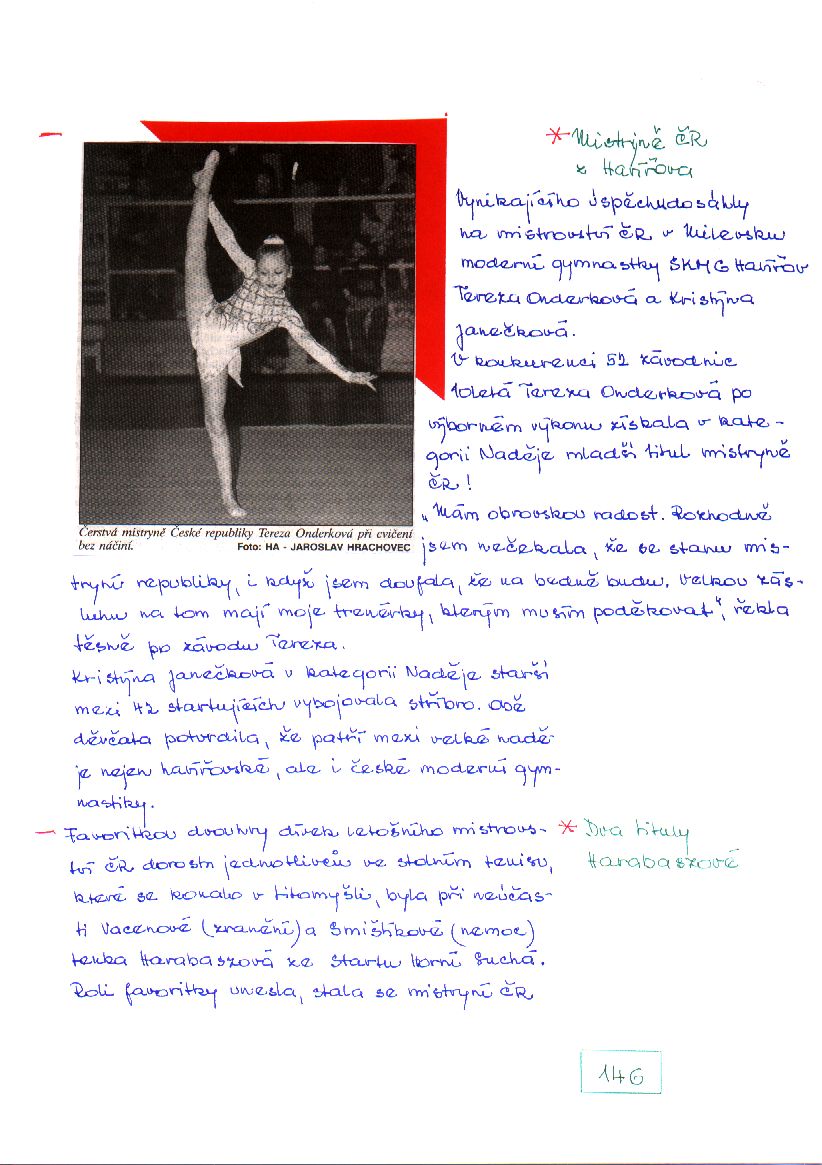 * Mistryně ČR
z Havířova
Vynikajícího úspěchu dosáhly
na mistrovství ČR v Milevsku
moderní gymnastky SKMG Havířov
Tereza Onderková a Kristýna
Janečková.
V konkurenci 52 závodnic
10letá Tereza Onderková po
výborném výkonu získala v kate-
gorii Naděje mladší titul mistryně
ČR!
Čerstvá mistryně České republiky Tereza Onderková při cvičení
bez náčiní. Foto: HA - JAROSLAV HRACHOVEC
„Mám obrovskou radost. Rozhodně
jsem nečekala, že se stanu mis-
tryní republiky, i když jsem doufala, že na bedně budu. Velkou zás-
luhu na tom mají moje trenérky, kterým musím poděkovat“, řekla
těsně po závodu Tereza.
Kristýna Janečková v kategorii Naděje starší
mezi 42 startujících vybojovala stříbro. Obě
děvčata potvrdila, že patří mezi velké nadě-
je nejen havířovské, ale i české moderní gym-
nastiky.
— Favoritkou dvouhry dívek letošního mistrovs-
* Dva tituly
Harabaszové
tví ČR dorostu jednotlivců ve stolním tenisu,
které se konalo v Litomyšli, byla při neúčas-
ti Vacenové (zranění) a Smištíkové (nemoc)
Lenka Harabaszová ze Startu Horní Suchá.
Roli favoritky unesla, stala se mistryní ČR
146